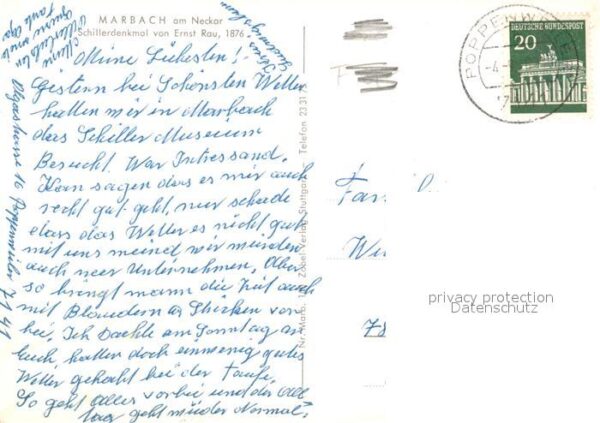 MARBACH am Neckar
Schillerdenkmal von Ernst Rau, 1876
Meine Liebsten!
Gestern bei Schönsten Wetter
hatten wir in Marbach
das Schiller Museum
Besucht. War Intressand.
Kan sagen das es mir auch
recht gut geht, nur schade
dass das Wetter es nicht gut
mit uns meind, wir würden
auch mer Unternehmen. Aber
so bringt mann die Zeit auch
mit Blaudern u. Stricken vor-
bei. Ich Dachte am Sonntag an
Euch hatten doch einwenig gutes
Wetter gehabt bei der Taufe.
So geht Alles vorbei und der All
tag geht wieder Normal.
Meine
Tante
Olgastrasse 16 Poppenweiler 7141
Telefon 23 31
Zobel-Verlag Stuttgart
POPPENWEILER
DEUTSCHE BUNDESPOST
20
Fa
privacy protection
Datenschutz